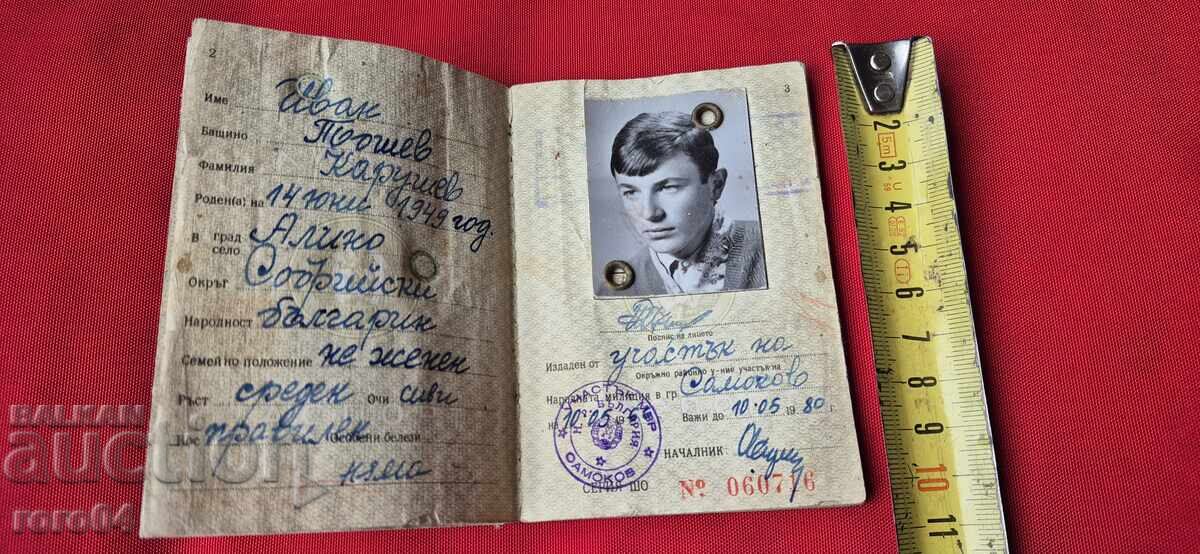 2
Име Иван
Бащино Тошев
Фамилия Карушев
Роден(а) на 14 юни 1949 год.
в град село Алино
Окръг Софийски
Народност българин
Семейно положение не женен
Ръст среден Очи сиви
Нос правилен Особени белези
няма
BALKAN
auction
roro64
3
Подпис на лицето
Издаден от участък на
Окръжно районно у-ние участък на
Народната милиция в гр. Самоков
на 10.05.19 Важи до 10.05 1980 г.
УЧАСТЪК МВР
Н. Р. БЪЛГАРИЯ
САМОКОВ
НАЧАЛНИК:
СЕРИЯ ШО № 060716
2
3
4
5
6
7
8
9
10
11